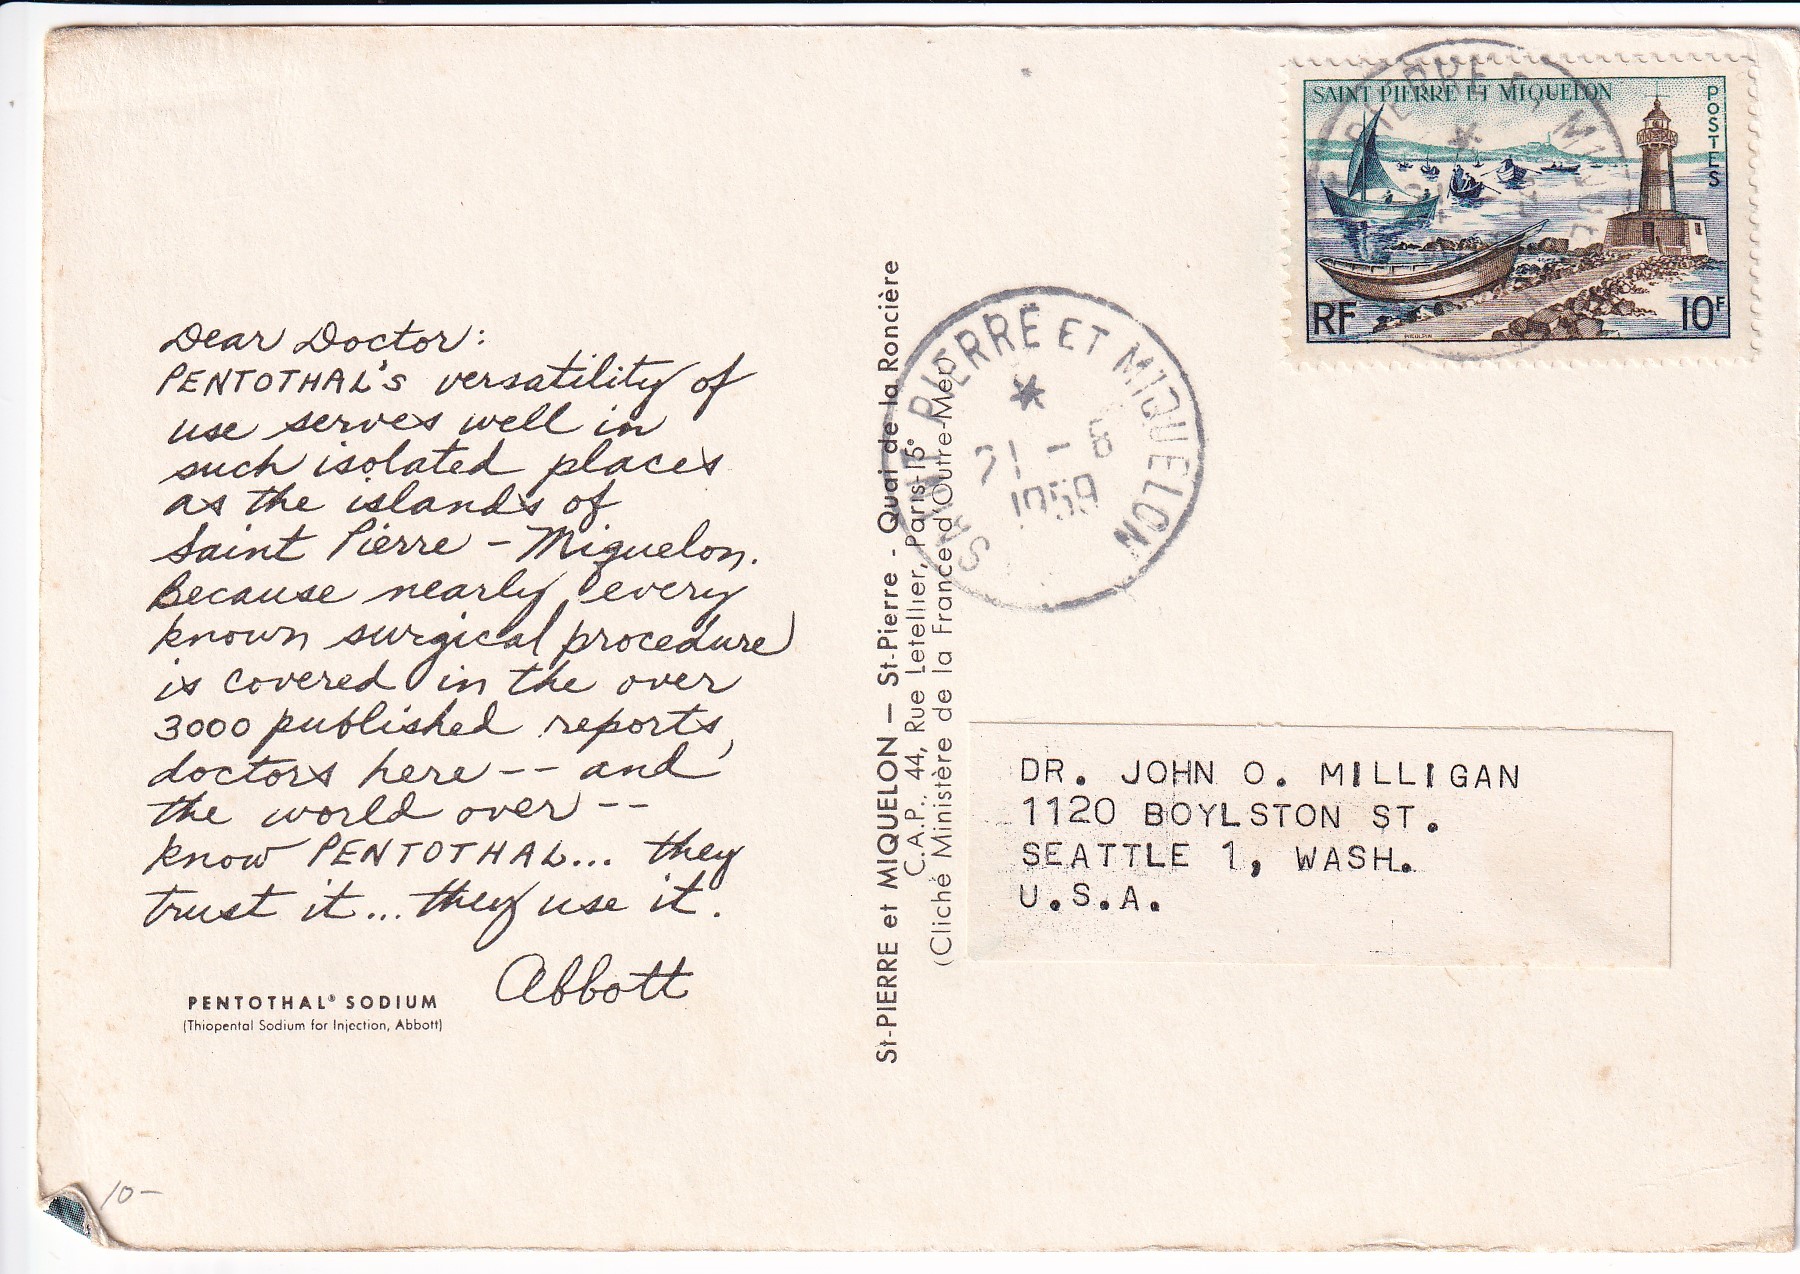 Dear Doctor:
PENTOTHAL'S versatility of
use serves well in
such isolated places
as the islands of
Saint Pierre – Miquelon.
Because nearly every
known surgical procedure
is covered in the over
3000 published reports,
doctors here -- and
the world over --
know PENTOTHAL... they
trust it... they use it.
Abbott
PENTOTHAL® SODIUM
(Thiopental Sodium for Injection, Abbott)
10-
St-PIERRE et MIQUELON — St-Pierre - Quai de la Roncière
C.A.P., 44, Rue Letellier, Paris-15°
(Cliché Ministère de la France d'Outre-Mer)
SAINT PIERRE ET MIQUELON
POSTES
RF
10F
SAINT PIERRE ET MIQUELON
21 - 8
1959
DR. JOHN O. MILLIGAN
1120 BOYLSTON ST.
SEATTLE 1, WASH.
U.S.A.